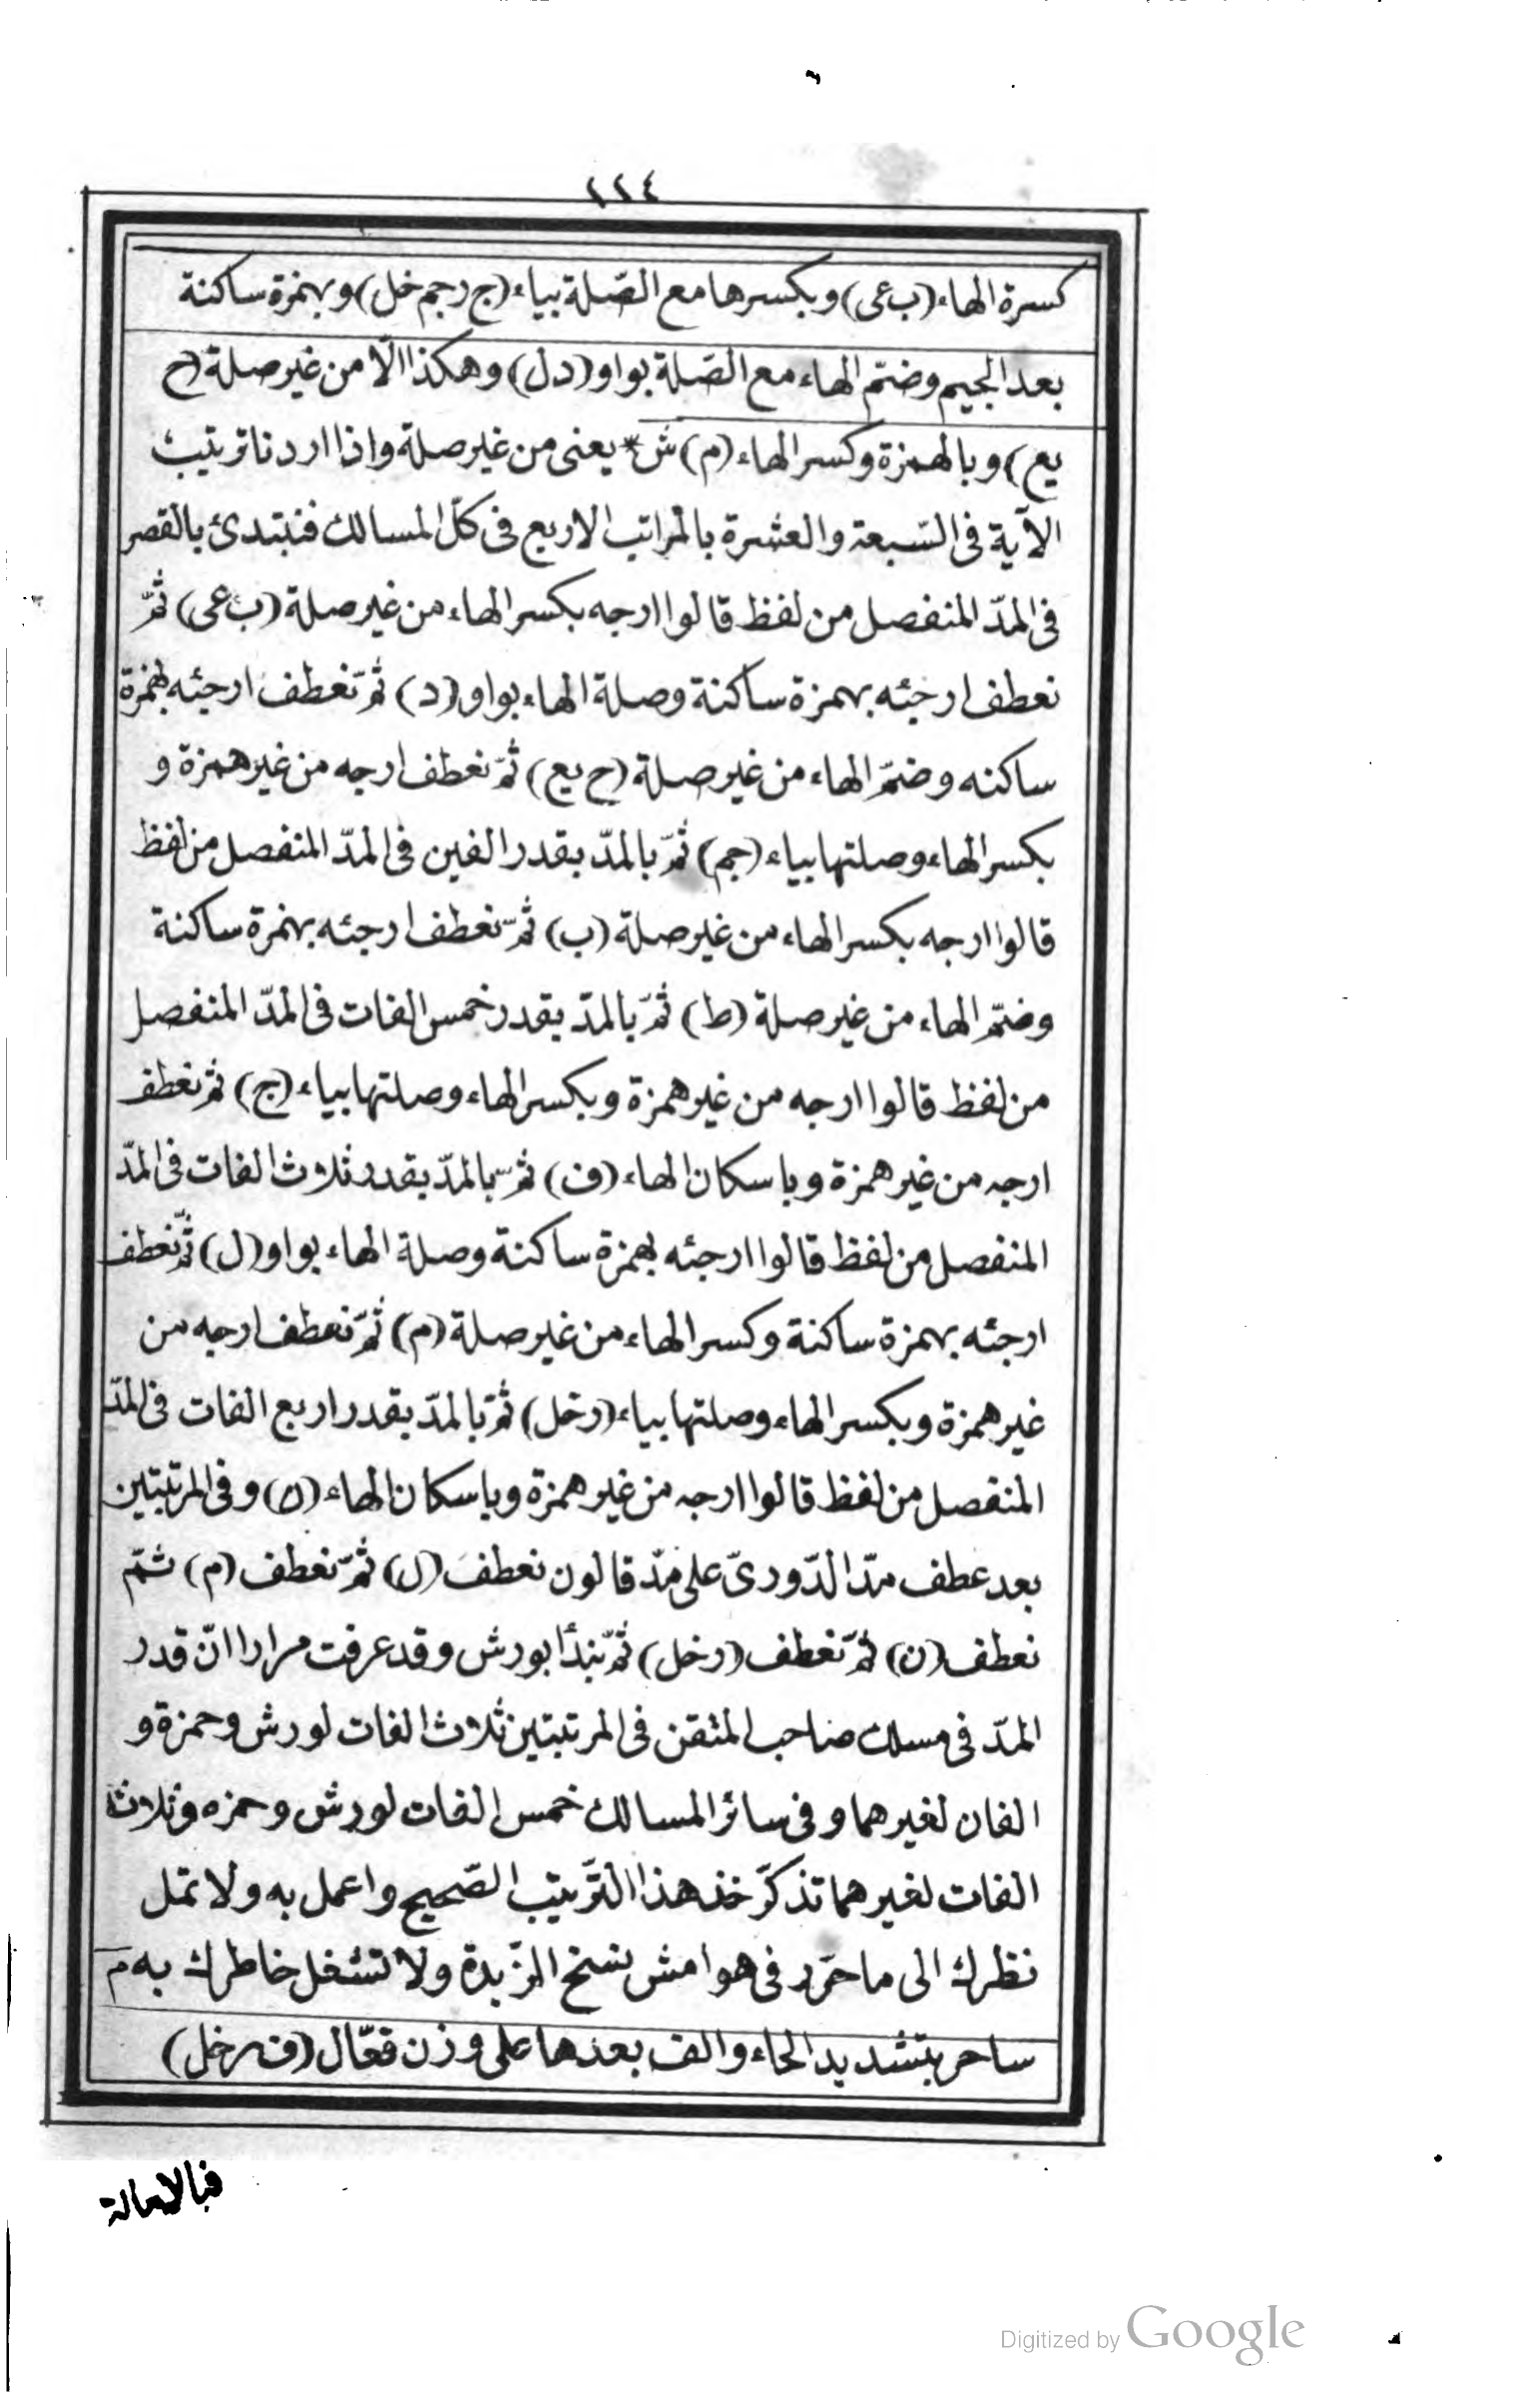 ١١٤
كسرة الهاء (ب عى) وبكسرها مع الصّلة بياء (ج رجم خل) وبهمزة ساكنة
بعد الجيم وضمّ الهاء مع الصّلة بواو (دل) وهكذا الّا من غير صلة (ح
يع) وبالهمزة وكسر الهاء (م) ش* يعنى من غير صلة واذا اردنا ترتيب
الآية فى السّبعة والعشرة بالمراتب الاربع فى كلّ المسالك فنبتدئ بالقصر
فى المدّ المنفصل من لفظ قالوا ارجه بكسر الهاء من غير صلة (ب عى) ثمّ
نعطف ارجئه بهمزة ساكنة وصلة الهاء بواو (د) ثمّ نعطف ارجئه بهمزة
ساكنه وضمّ الهاء من غير صلة (ح يع) ثمّ نعطف ارجه من غير همزة و
بكسر الهاء وصلتها بياء (جم) ثمّ بالمدّ بقدر الفين فى المدّ المنفصل من لفظ
قالوا ارجه بكسر الهاء من غير صلة (ب) ثمّ نعطف ارجئه بهمزة ساكنة
وضمّ الهاء من غير صلة (ط) ثمّ بالمدّ بقدر خمس الفات فى المدّ المنفصل
من لفظ قالوا ارجه من غير همزة وبكسر الهاء وصلتها بياء (ج) ثمّ نعطف
ارجه من غير همزة وباسكان الهاء (ف) ثمّ بالمدّ بقدر ثلاث الفات فى المدّ
المنفصل من لفظ قالوا ارجئه بهمزة ساكنة وصلة الهاء بواو (ل) ثمّ نعطف
ارجئه بهمزة ساكنة وكسر الهاء من غير صلة (م) ثمّ نعطف ارجه من
غير همزة وبكسر الهاء وصلتها بياء (رخل) ثمّ بالمدّ بقدر اربع الفات فى المدّ
المنفصل من لفظ قالوا ارجه من غير همزة وباسكان الهاء (ن) وفى المرتبتين
بعد عطف مدّ الدّورىّ على مدّ قالون نعطف (ل) ثمّ نعطف (م) ثمّ
نعطف (ن) ثمّ نعطف (رخل) ثمّ نبدأ بورش وقد عرفت مرارا انّ قدر
المدّ فى مسلك صاحب المتقن فى المرتبتين ثلاث الفات لورش وحمزة و
الفان لغيرهما وفى سائر المسالك خمس الفات لورش وحمزه وثلاث
الفات لغيرهما تذكّر خذ هذا التّرتيب الصّحيح واعمل به ولا تمل
نظرك الى ما حرّر فى هوامش نسخ الزّبدة ولا تشغل خاطرك به م
ساحر بتشديد الحاء والف بعدها على وزن فعّال (ف رخل)
فبالامالة
Digitized by Google